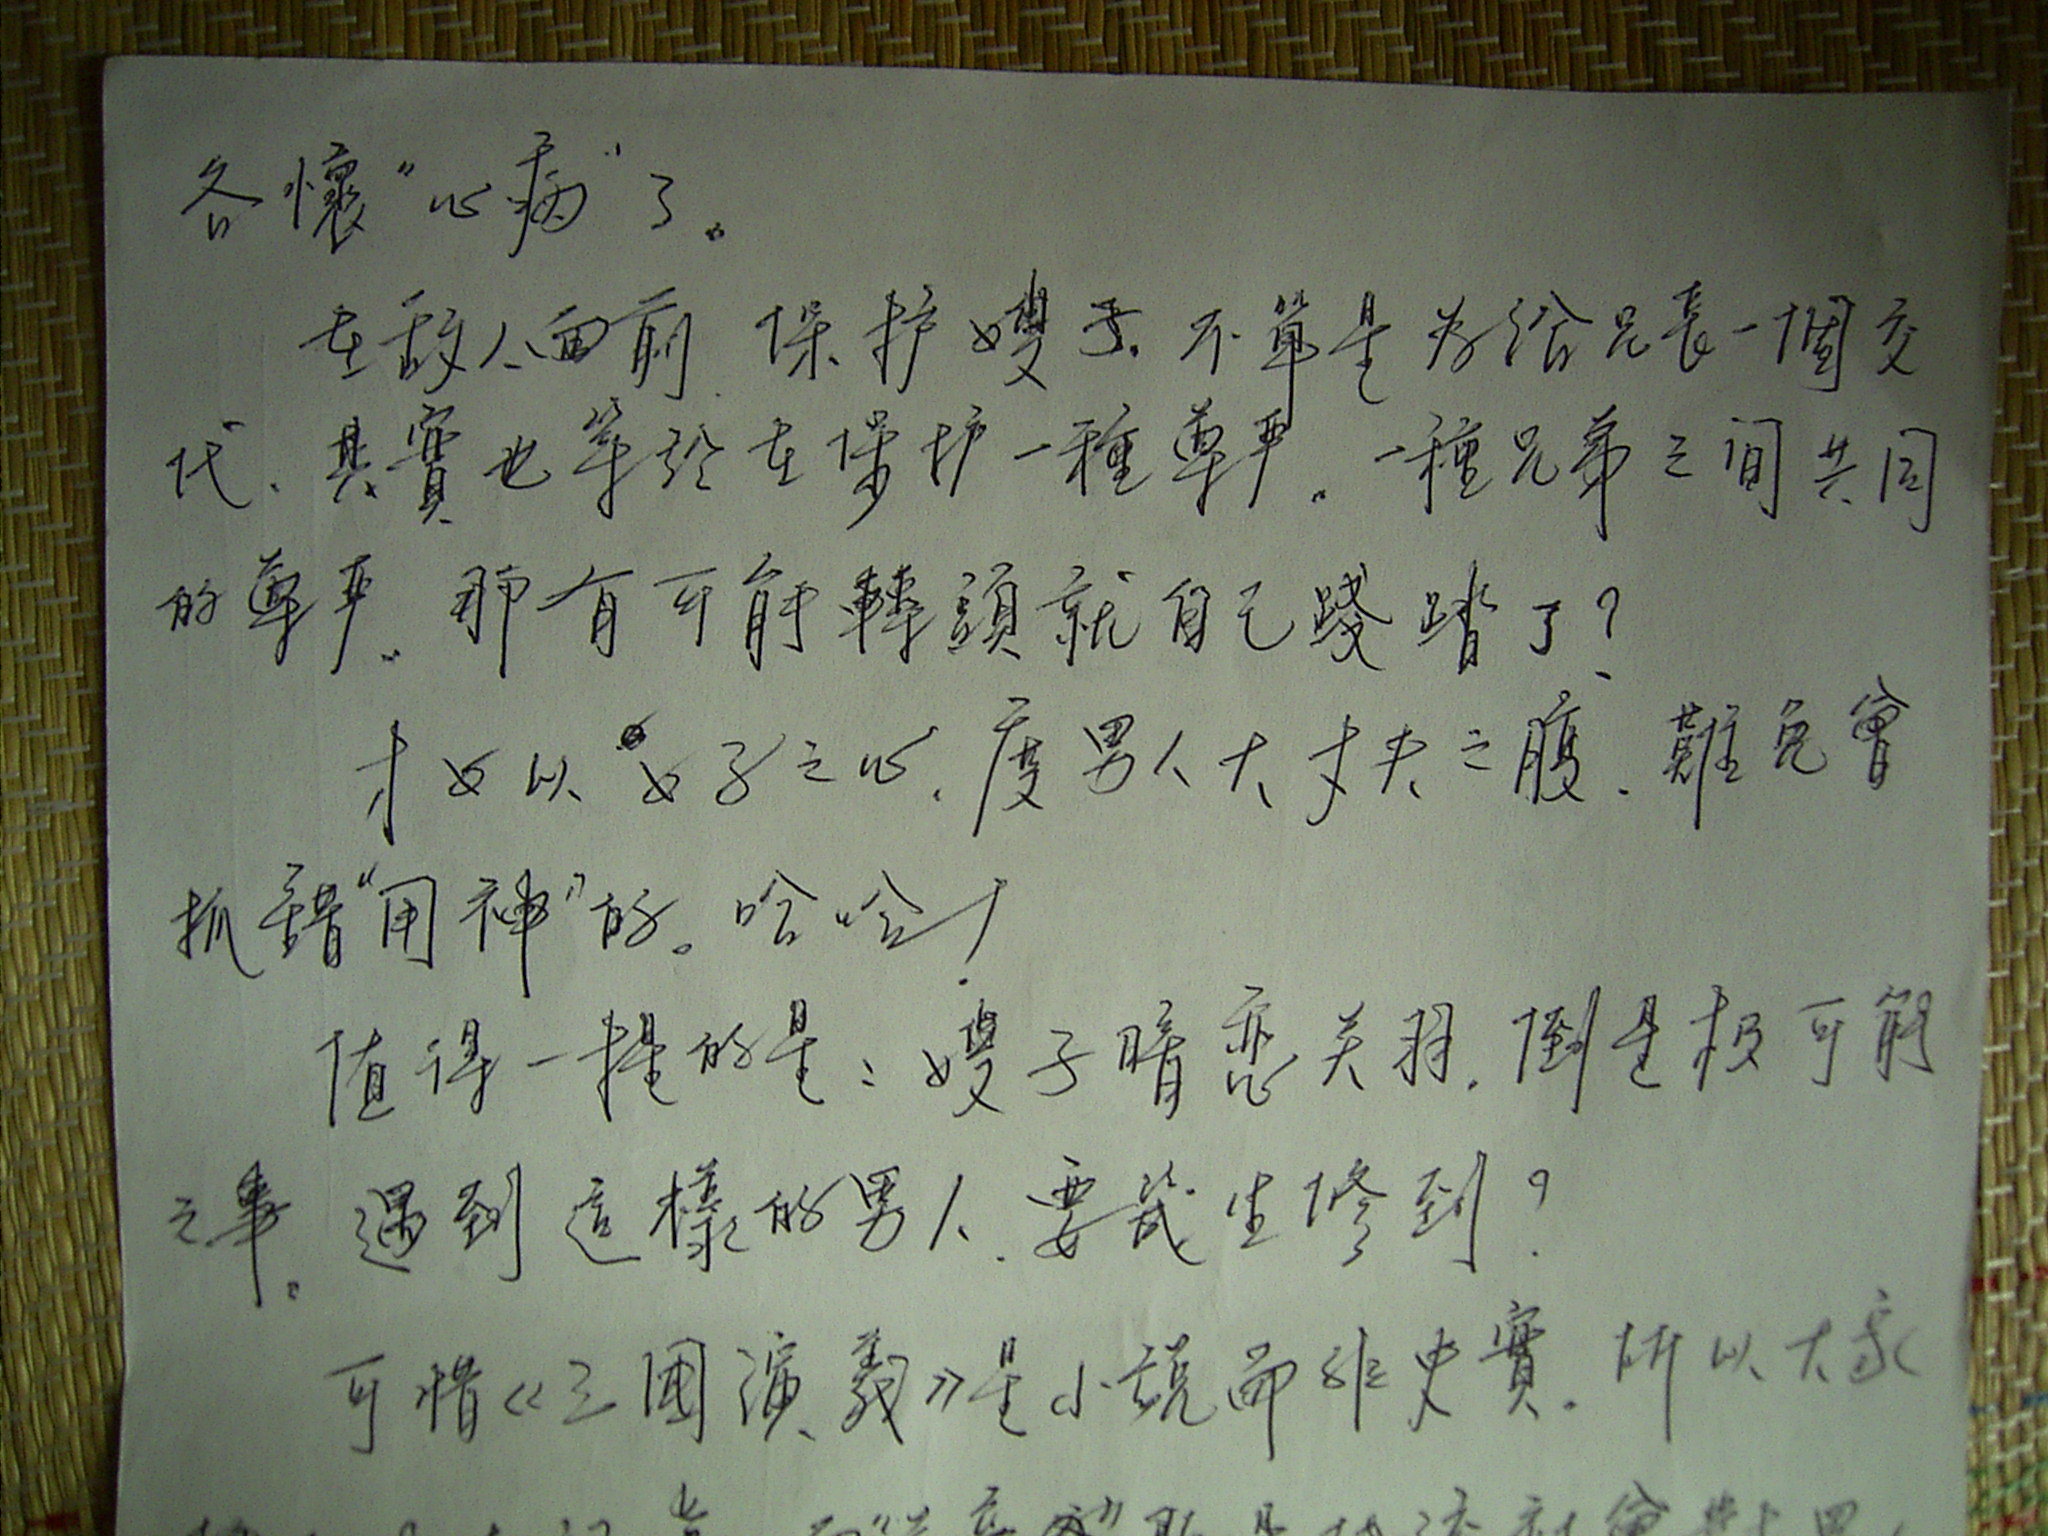 各懷“心病”了。
在敵人面前，保护嫂子，不算是为給兄長一個交
代，其實也等於在保护一種尊严。一種兄弟之间共同
的尊严。那有可能轉頭就自己踐踏了？
才女以女子之心，度男人大丈夫之腹，難免會
抓錯“用神”的。哈哈！
值得一提的是：嫂子暗恋关羽，倒是极可能
之事。遇到這樣的男人，要幾生修到？
可惜《三國演義》是小說而非史實。所以大家